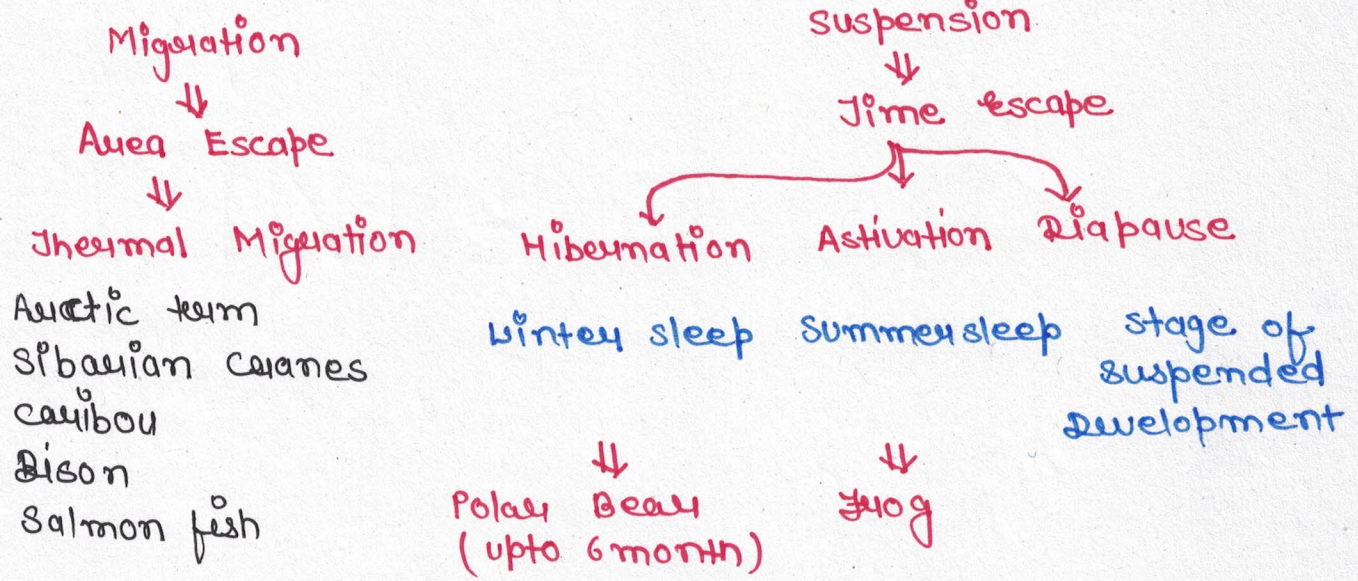 Migration
Area Escape
Thermal Migration
Arctic term
Sibarian cranes
caribou
Bison
Salmon fish
Suspension
Time escape
Hibernation Astivation Diapause
winter sleep summer sleep stage of
suspended
Development
Polar Bear
(upto 6 month)
Frog